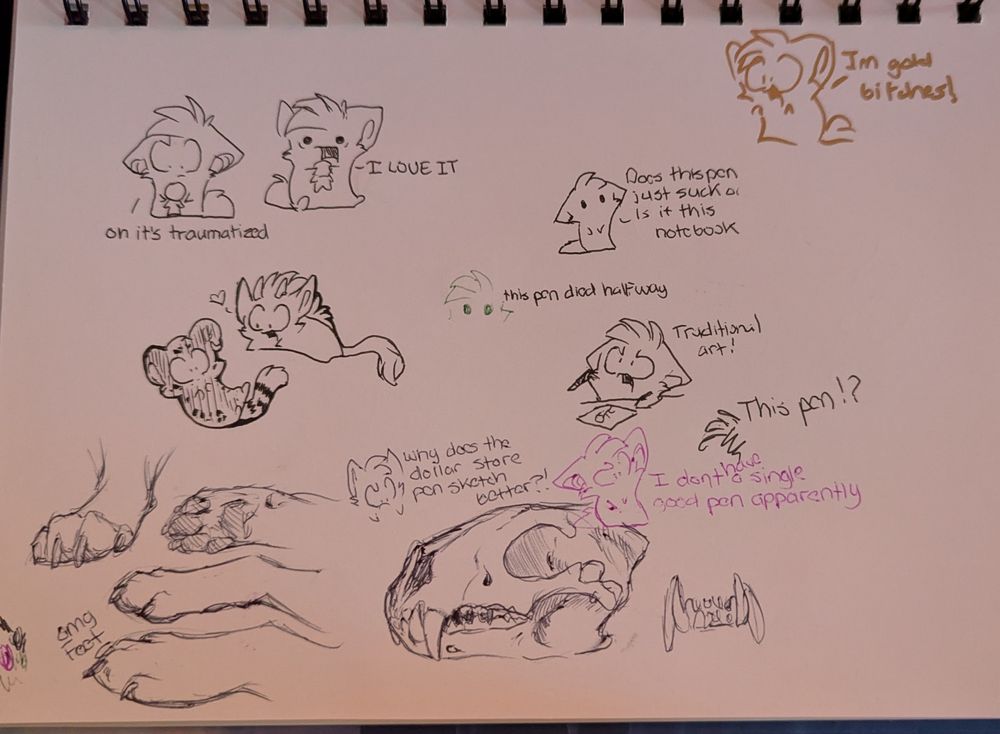 Im gold
bitches!
I LOVE IT
oh it's traumatized
Does this pen
just suck or
Is it this
notebook
this pen died halfway
Traditional
art!
This pen!?
why does the
dollar store
pen sketch
better?!
I dont have a single
good pen apparently
omg
feet